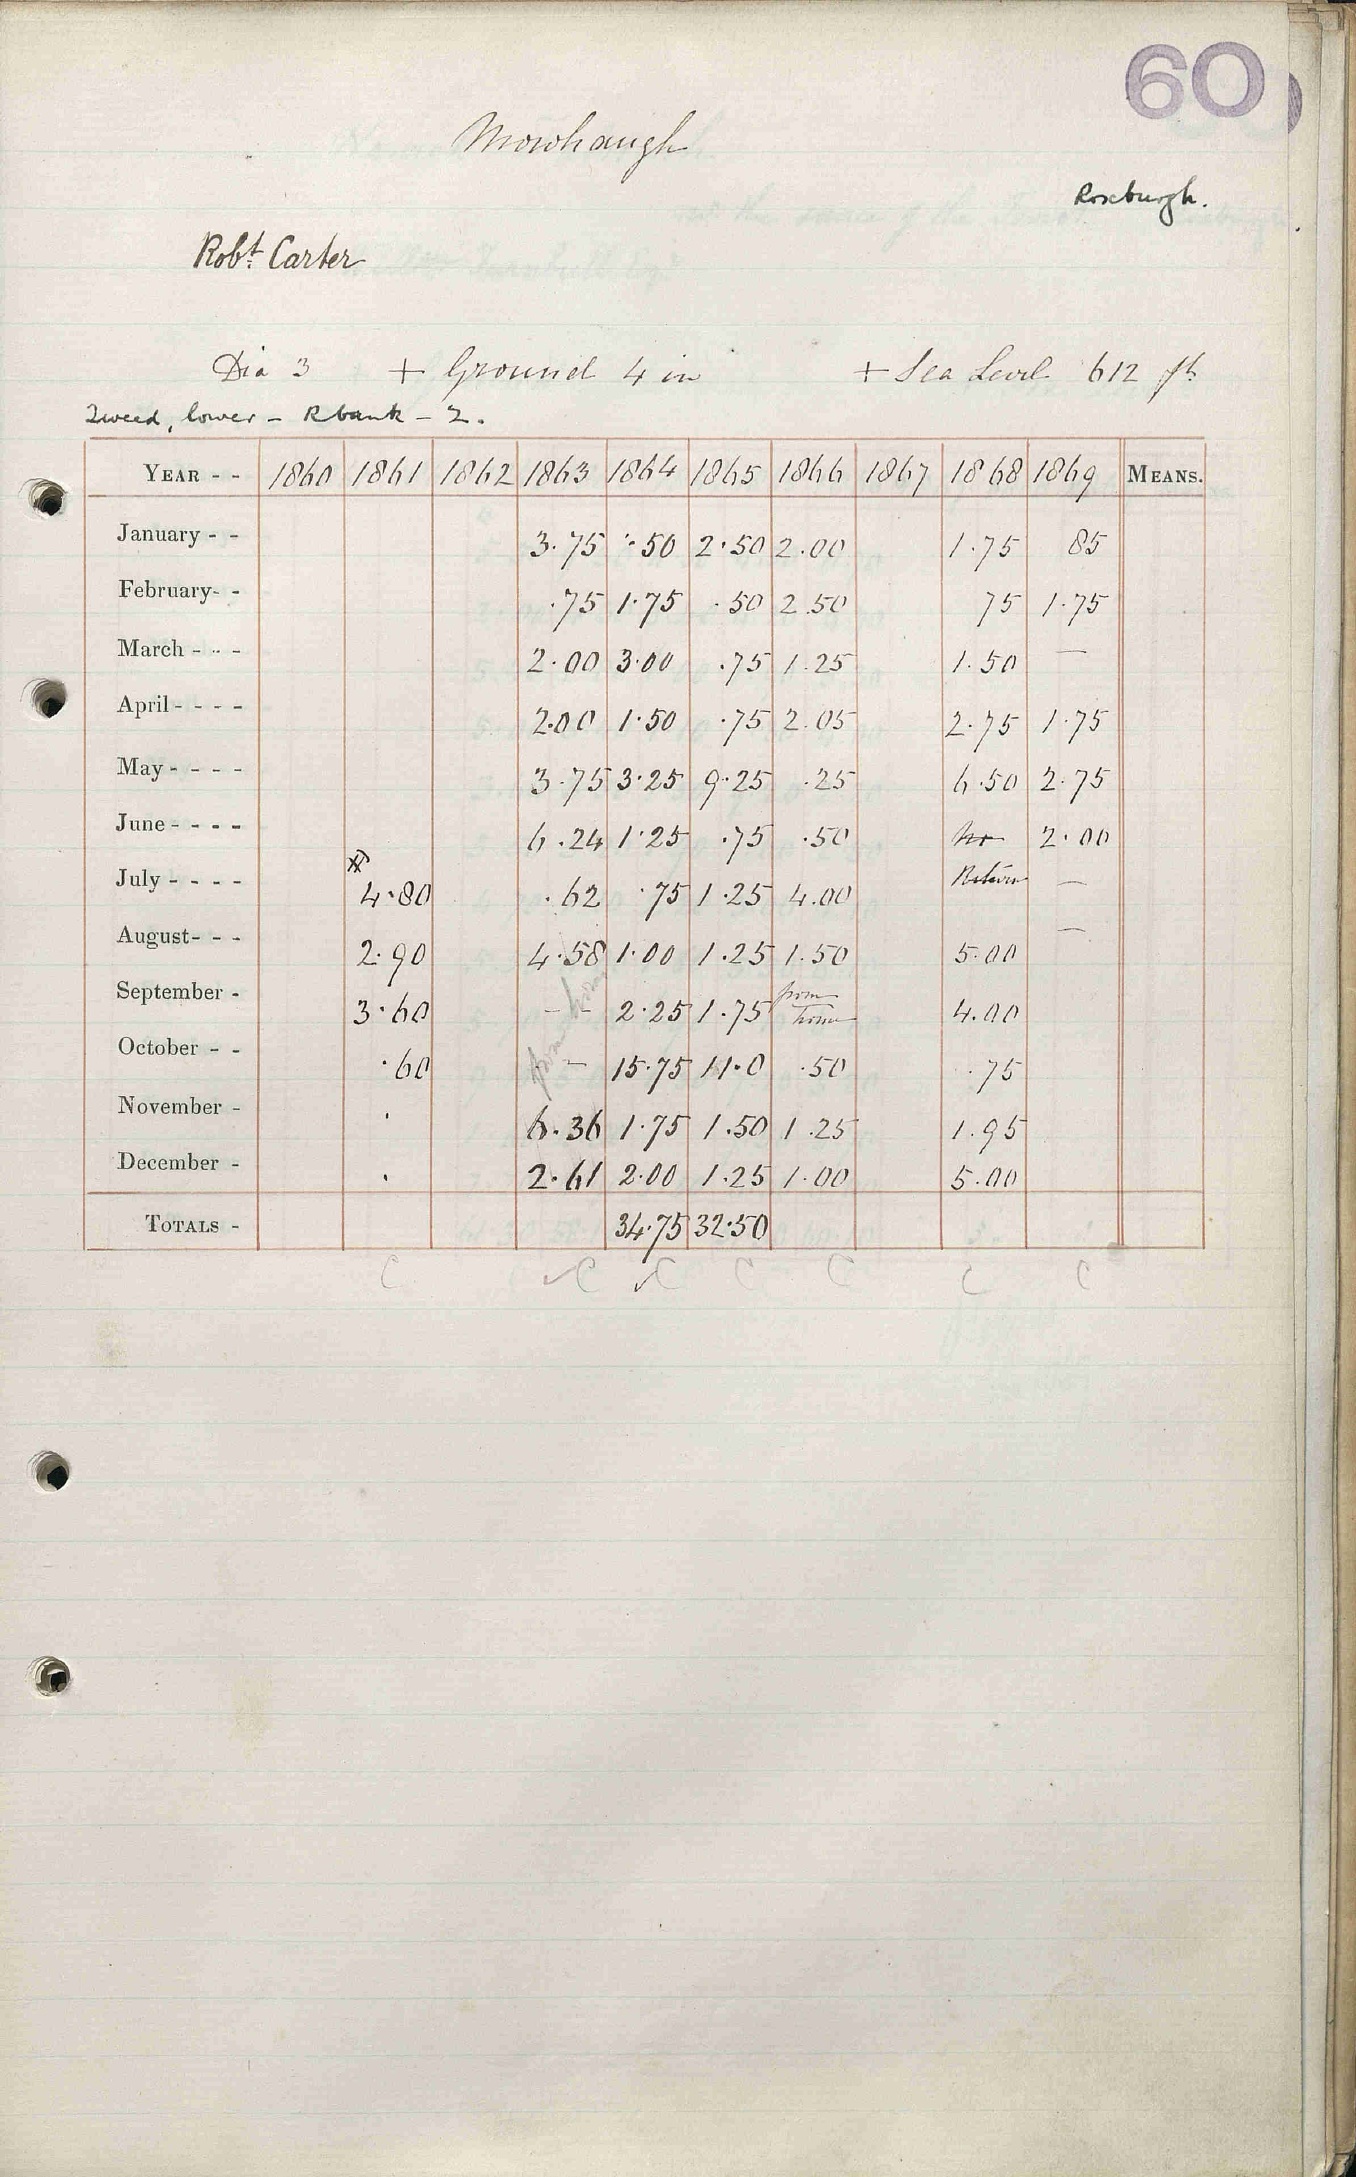 60
Mowhaugh
Roxburgh.
Robt. Carter
Dia 3 + Ground 4 in + Sea Level 612 ft
Tweed, lower - R bank - 2.
YEAR - - 1860 1861 1862 1863 1864 1865 1866 1867 1868 1869 MEANS.
January - - 3.75 .50 2.50 2.00 1.75 85
February - - .75 1.75 .50 2.50 75 1.75
March - - - 2.00 3.00 .75 1.25 1.50 —
April - - - - 2.00 1.50 .75 2.05 2.75 1.75
May - - - - 3.75 3.25 9.25 .25 6.50 2.75
June - - - - 6.24 1.25 .75 .50 no 2.00
July - - - - 4.80 .62 .75 1.25 4.00 Return —
August - - - 2.90 4.58 1.00 1.25 1.50 5.00 —
September - 3.60 - - from home 2.25 1.75 from home 4.00
October - - .60 - - 15.75 11.0 .50 .75
November - . 6.36 1.75 1.50 1.25 1.95
December - . 2.61 2.00 1.25 1.00 5.00
TOTALS - 34.75 32.50
C C C C C C C